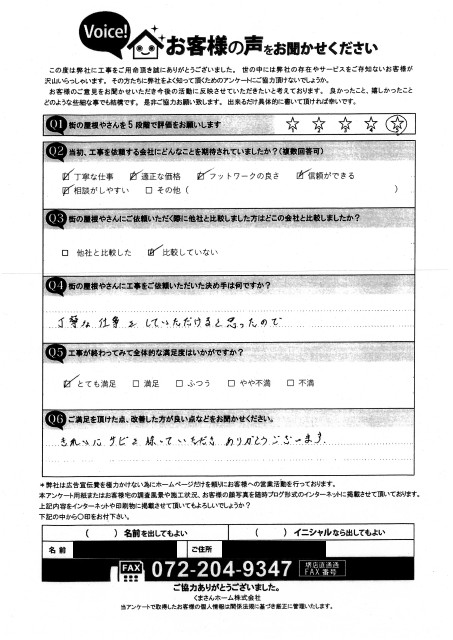 Voice!
お客様の声をお聞かせください
この度は弊社に工事をご用命頂き誠にありがとうございました。 世の中には弊社の存在やサービスをご存知ないお客様が
沢山いらっしゃいます。 その方たちに弊社をよく知って頂くためのアンケートにご協力頂けないでしょうか。
お客様のご意見をお聞かせいただき今後の活動に反映させていただきたいと考えております。 良かったこと、嬉しかったこと
どのような些細な事でも結構です。 是非ご協力お願い致します。 出来るだけ具体的に書いて頂ければ幸いです。
Q1 街の屋根やさんを5段階で評価をお願いします ☆ ☆ ☆ ☆ ☆
Q2 当初、工事を依頼する会社にどんなことを期待されていましたか？（複数回答可）
☑ 丁寧な仕事 ☑ 適正な価格 ☑ フットワークの良さ ☑ 信頼ができる
☑ 相談がしやすい □ その他（ ）
Q3 街の屋根やさんにご依頼いただく際に他社と比較しました方はどこの会社と比較しましたか？
□ 他社と比較した ☑ 比較していない
Q4 街の屋根やさんに工事をご依頼いただいた決め手は何ですか？
丁寧な仕事をしていただけると思ったので
Q5 工事が終わってみて全体的な満足度はいかがですか？
☑ とても満足 □ 満足 □ ふつう □ やや不満 □ 不満
Q6 ご満足を頂けた点、改善した方が良い点などをお聞かせください。
きれいにサビを採っていただきありがとうございます.
＊弊社は広告宣伝費を極力かけない為にホームページだけを頼りにお客様への営業活動を行っております。
本アンケート用紙またはお客様宅の調査風景や施工状況、お客様の顔写真を随時ブログ形式のインターネットに掲載させて頂いております。
上記内容をインターネットや印刷物に掲載させて頂いてもよろしいでしょうか？
下記の中から〇印をお付下さい。
（ ）名前を出してもよい （ ）イニシャルなら出してもよい
名前 ご住所
FAX 072-204-9347 堺店直通通
FAX番号
ご協力ありがとうございました。
くまさんホーム株式会社
当アンケートで取得したお客様の個人情報は関係法規に基づき厳正に管理いたします。